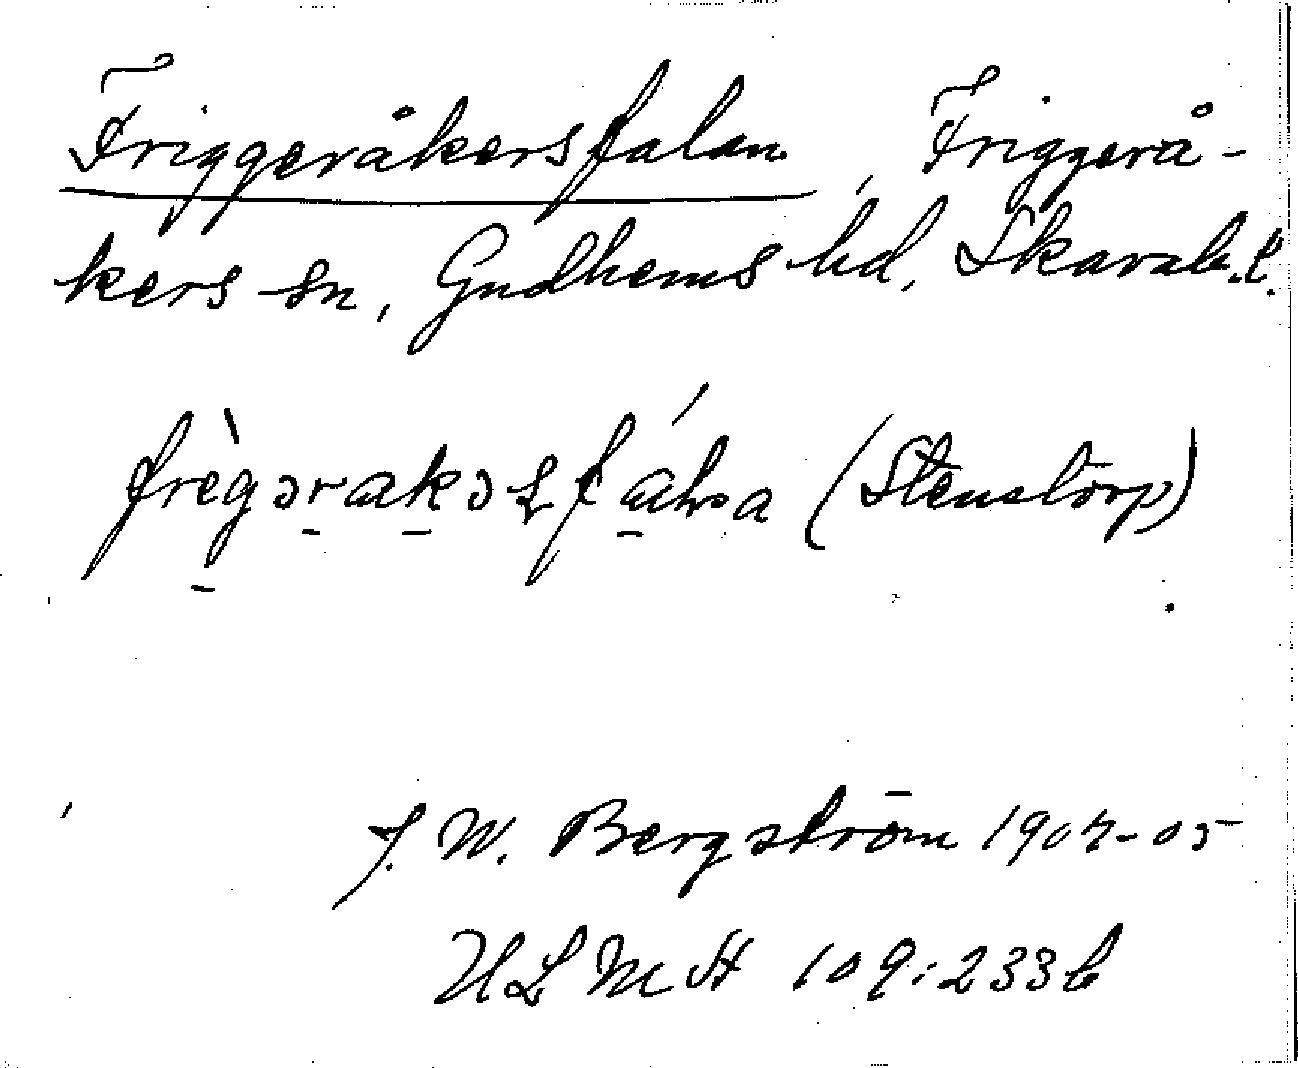 Friggeråkersfalan, Friggerå-
kers sn, Gudhems hd, Skarab.l.
(Stenstorp)
J. W. Bergström 1904-05
ULMA 109:233 b